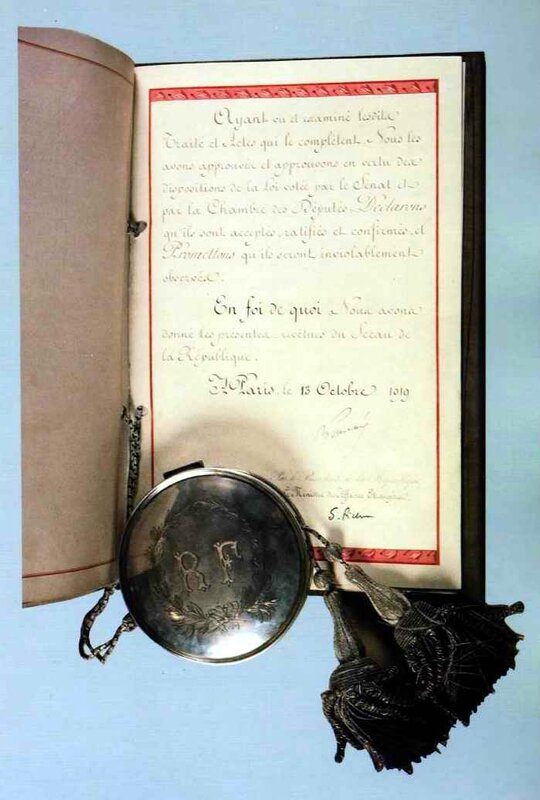 Ayant vu et examiné lesdits
Traité et Actes qui le complètent, Nous les
avons approuvés et approuvons en vertu des
dispositions de la Loi votée par le Sénat et
par la Chambre des Députés, Déclarons
qu'ils sont acceptés, ratifiés et confirmés, et
Promettons qu'ils seront inviolablement
observés.
En foi de quoi, Nous avons
donné les présentes, revêtues du Sceau de
la République.
A Paris, le 13 Octobre 1919
Par le Président de la République
Le Ministre des Affaires Étrangères
RF